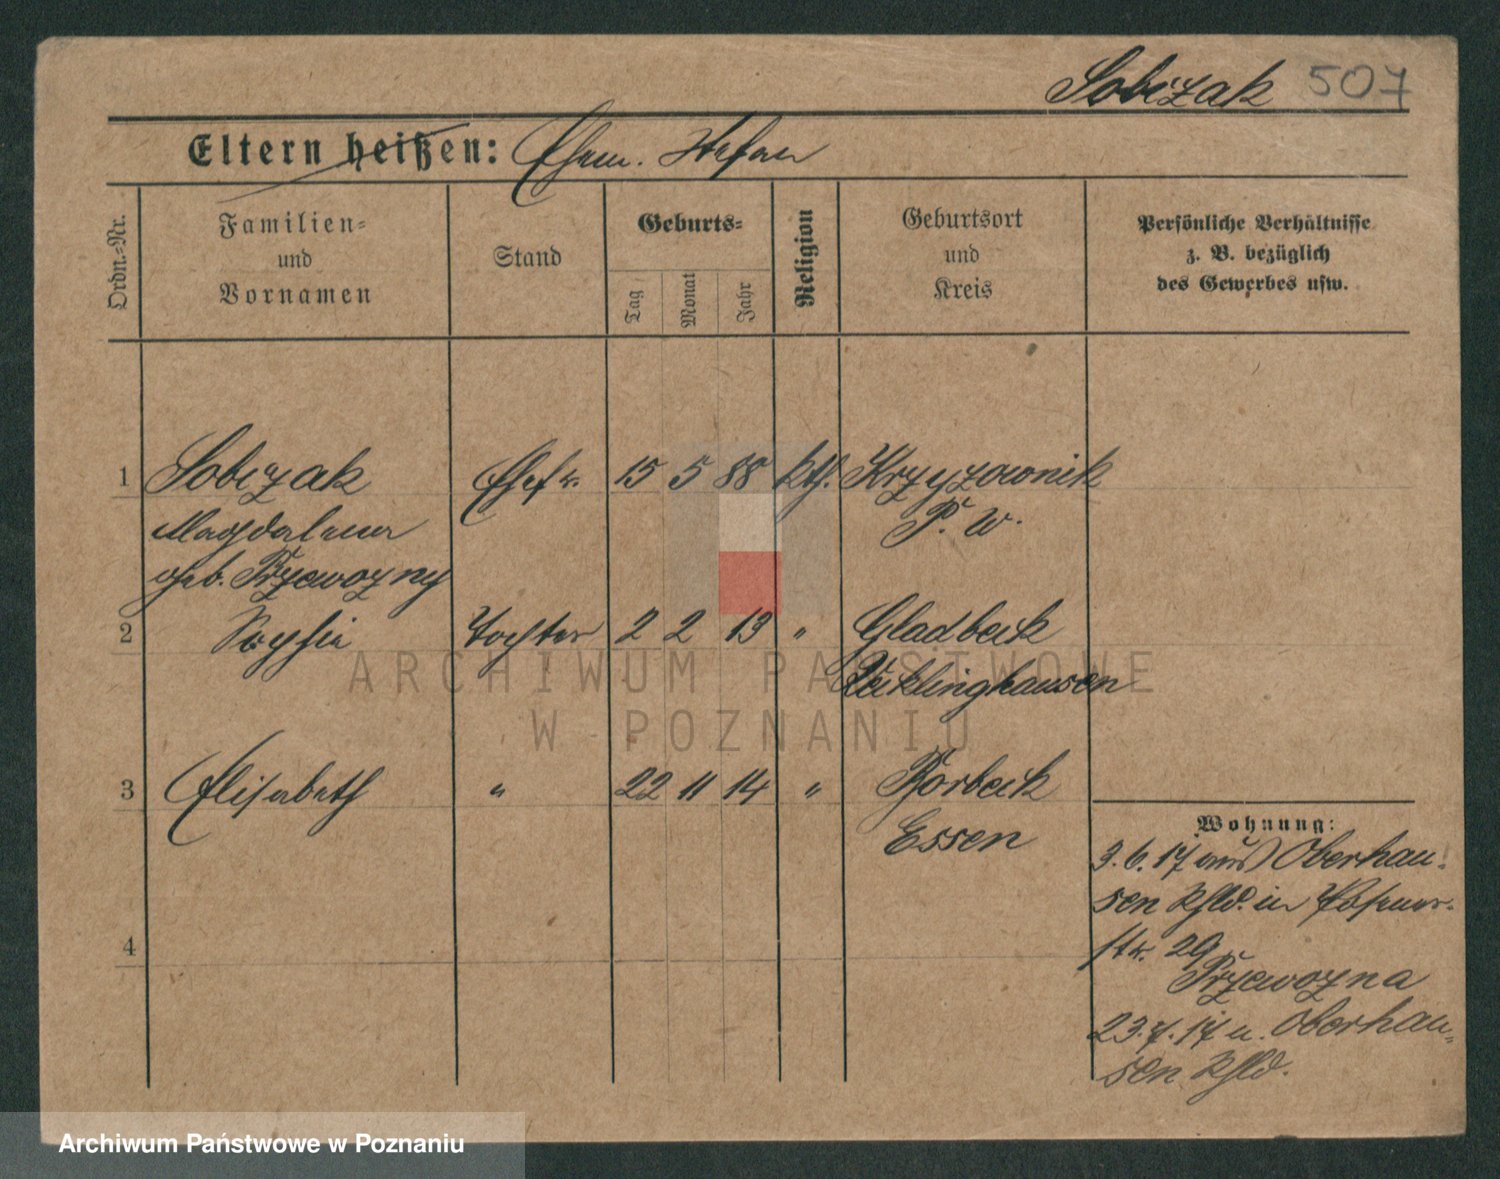 Sobczak 507
Eltern heißen: Ehem. Stefan
Ordn.-Nr.
Familien-
und
Vornamen
Stand
Geburts-
Tag
Monat
Jahr
Religion
Geburtsort
und
Kreis
Persönliche Verhältnisse
z. B. bezüglich
des Gewerbes usw.
1 Sobczak Ehefr. 15 5 88 kth. Krzyzownik
Magdalena P. W.
geb. Przewozny
2 Sophie Tochter 2 2 13 " Gladbeck
Recklinghausen
3 Elisabeth " 22 11 14 " Borbeck
Essen
Wohnung:
3.6.17 aus Oberhau-
sen Rhld. in Posener-
str. 29
Przewozna
23.7.17 n. Oberhau-
sen Rhld.
4
ARCHIWUM PAŃSTWOWE
W POZNANIU
Archiwum Państwowe w Poznaniu